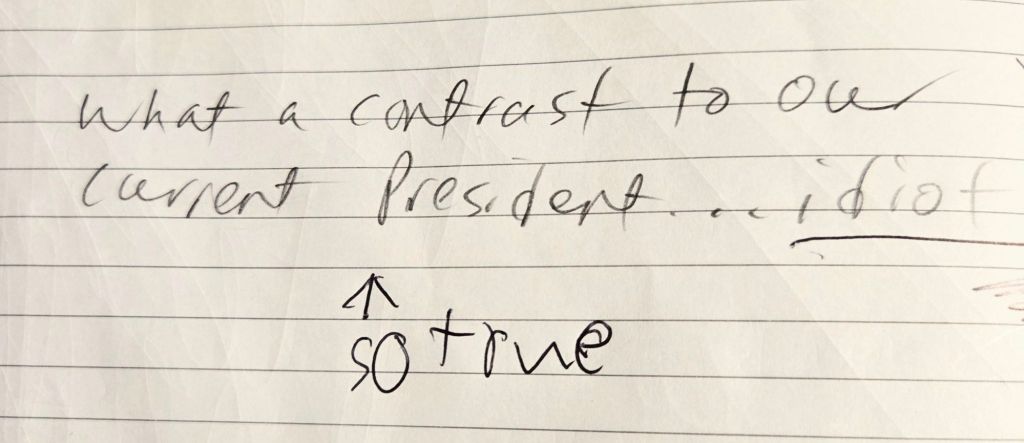 What a contrast to our
current President.... idiot
↑
so true